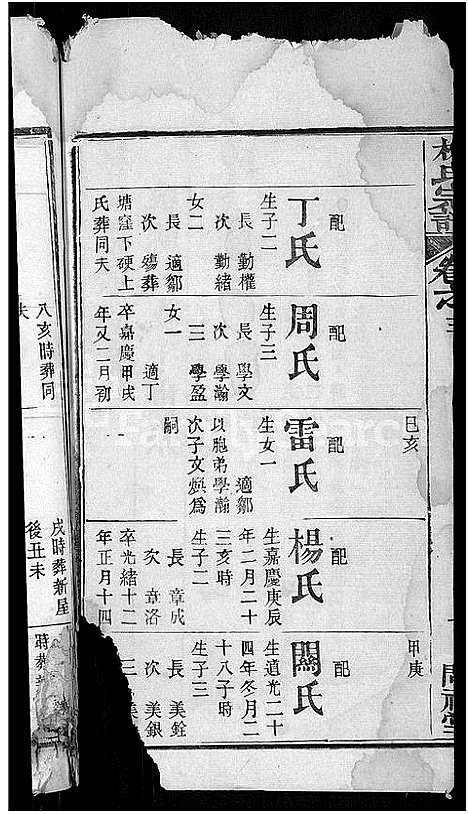 卷之三
配
丁氏
生子二
長 勤權
次 勤緒
女二
長 適鄒
次 殤葬
塘窪下硬上
氏葬同夫
配
周氏
生子三
長 學文
次 學瀚
三 學盈
女一
適丁
卒嘉慶甲戌
年又二月初
巳亥
配
雷氏
生女一
適鄒
以胞弟學瀚
次子文煥為
嗣
配
楊氏
生嘉慶庚辰
年二月二十
三亥時
生子二
長 章成
次 章洛
卒光緒十二
年正月十四
甲庚
配
關氏
生道光二十
四年冬月二
十八子時
生子三
長 美銓
次 美銀
三 美
八亥時葬同
夫
戌時葬新屋
後丑未
時葬